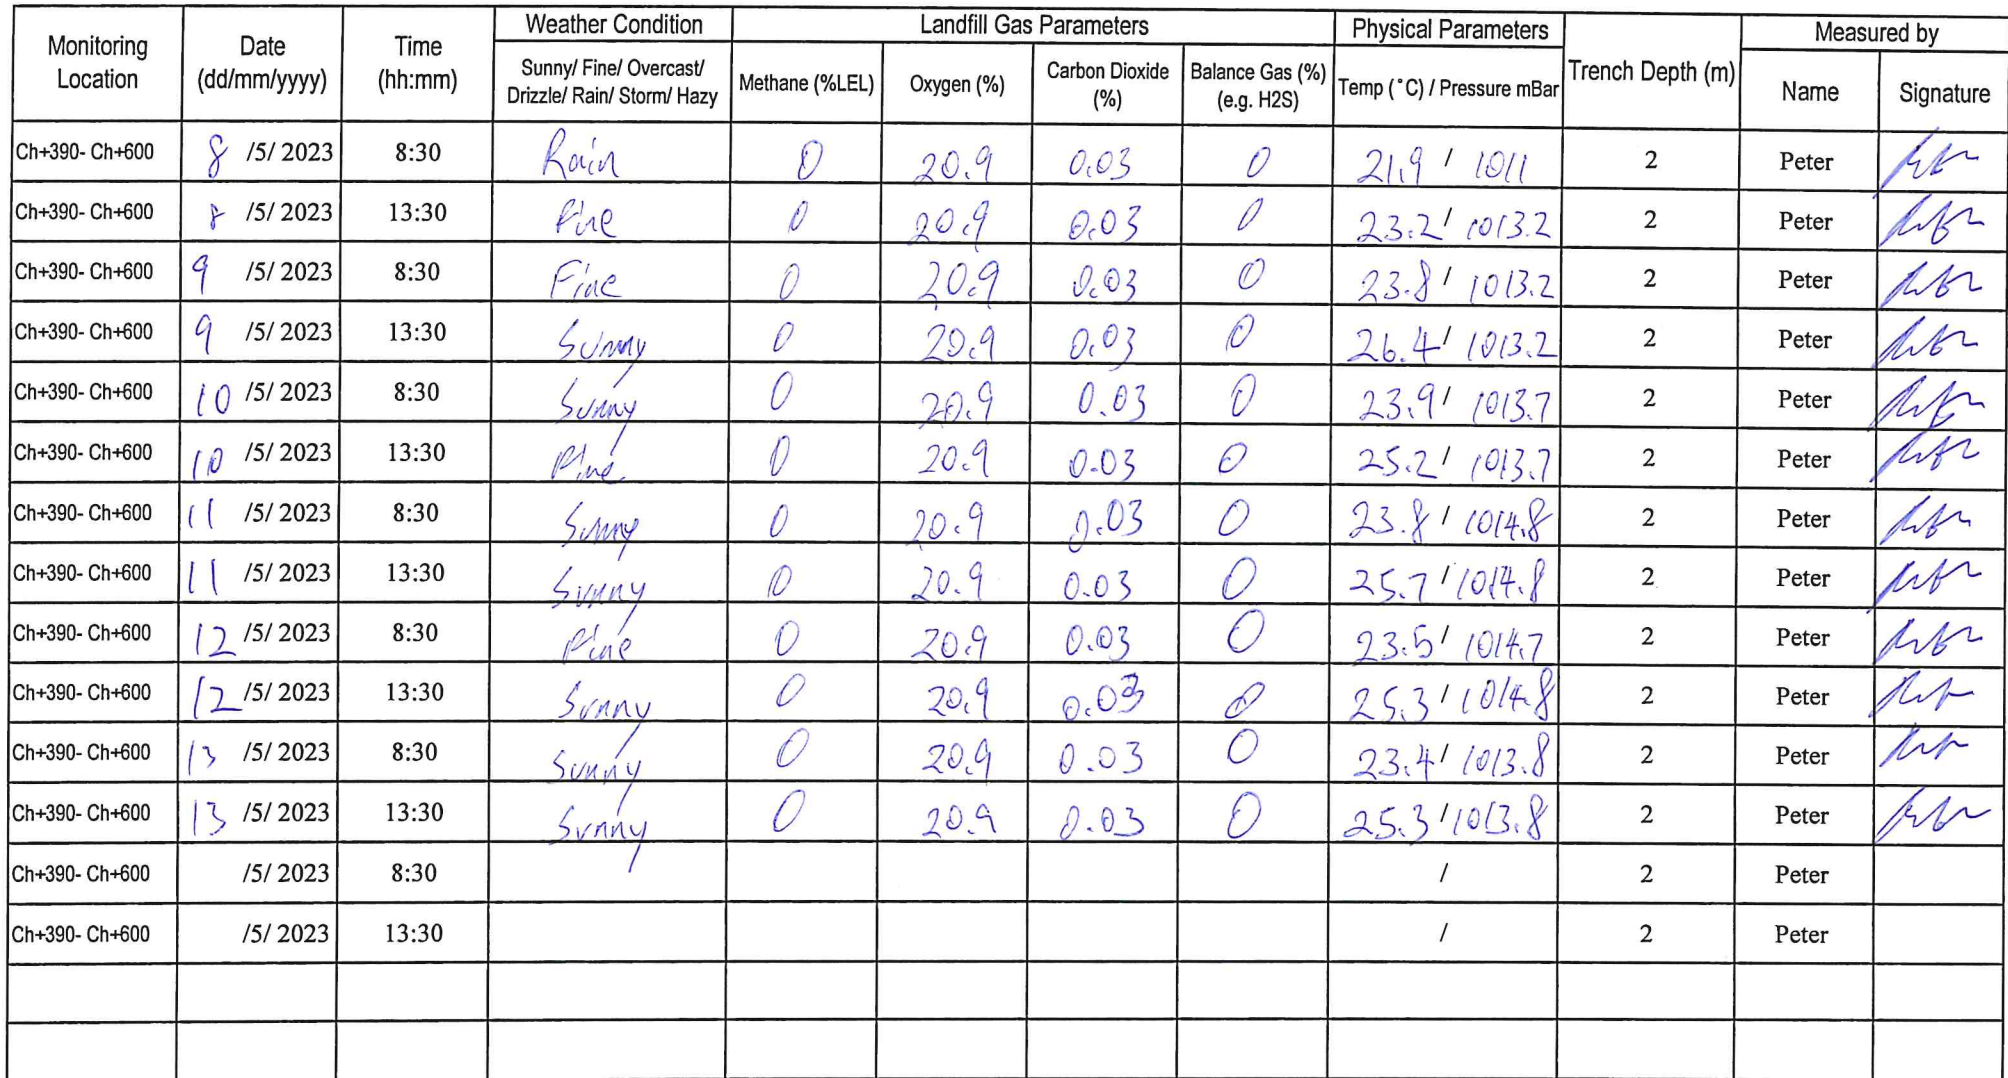 Monitoring Location Date (dd/mm/yyyy) Time (hh:mm) Weather Condition Landfill Gas Parameters Physical Parameters Trench Depth (m) Measured by
Sunny/ Fine/ Overcast/ Drizzle/ Rain/ Storm/ Hazy Methane (%LEL) Oxygen (%) Carbon Dioxide (%) Balance Gas (%) (e.g. H2S) Temp (˚C) / Pressure mBar Name Signature
Ch+390- Ch+600 8 /5/ 2023 8:30 Rain 0 20.9 0.03 0 21.9 / 1011 2 Peter
Ch+390- Ch+600 8 /5/ 2023 13:30 Fine 0 20.9 0.03 0 23.2 / 1013.2 2 Peter
Ch+390- Ch+600 9 /5/ 2023 8:30 Fine 0 20.9 0.03 0 23.8 / 1013.2 2 Peter
Ch+390- Ch+600 9 /5/ 2023 13:30 Sunny 0 20.9 0.03 0 26.4 / 1013.2 2 Peter
Ch+390- Ch+600 10 /5/ 2023 8:30 Sunny 0 20.9 0.03 0 23.9 / 1013.7 2 Peter
Ch+390- Ch+600 10 /5/ 2023 13:30 Fine 0 20.9 0.03 0 25.2 / 1013.7 2 Peter
Ch+390- Ch+600 11 /5/ 2023 8:30 Sunny 0 20.9 0.03 0 23.8 / 1014.8 2 Peter
Ch+390- Ch+600 11 /5/ 2023 13:30 Sunny 0 20.9 0.03 0 25.7 / 1014.8 2 Peter
Ch+390- Ch+600 12 /5/ 2023 8:30 Fine 0 20.9 0.03 0 23.5 / 1014.7 2 Peter
Ch+390- Ch+600 12 /5/ 2023 13:30 Sunny 0 20.9 0.03 0 25.3 / 1014.8 2 Peter
Ch+390- Ch+600 13 /5/ 2023 8:30 Sunny 0 20.9 0.03 0 23.4 / 1013.8 2 Peter
Ch+390- Ch+600 13 /5/ 2023 13:30 Sunny 0 20.9 0.03 0 25.3 / 1013.8 2 Peter
Ch+390- Ch+600 /5/ 2023 8:30 / 2 Peter
Ch+390- Ch+600 /5/ 2023 13:30 / 2 Peter